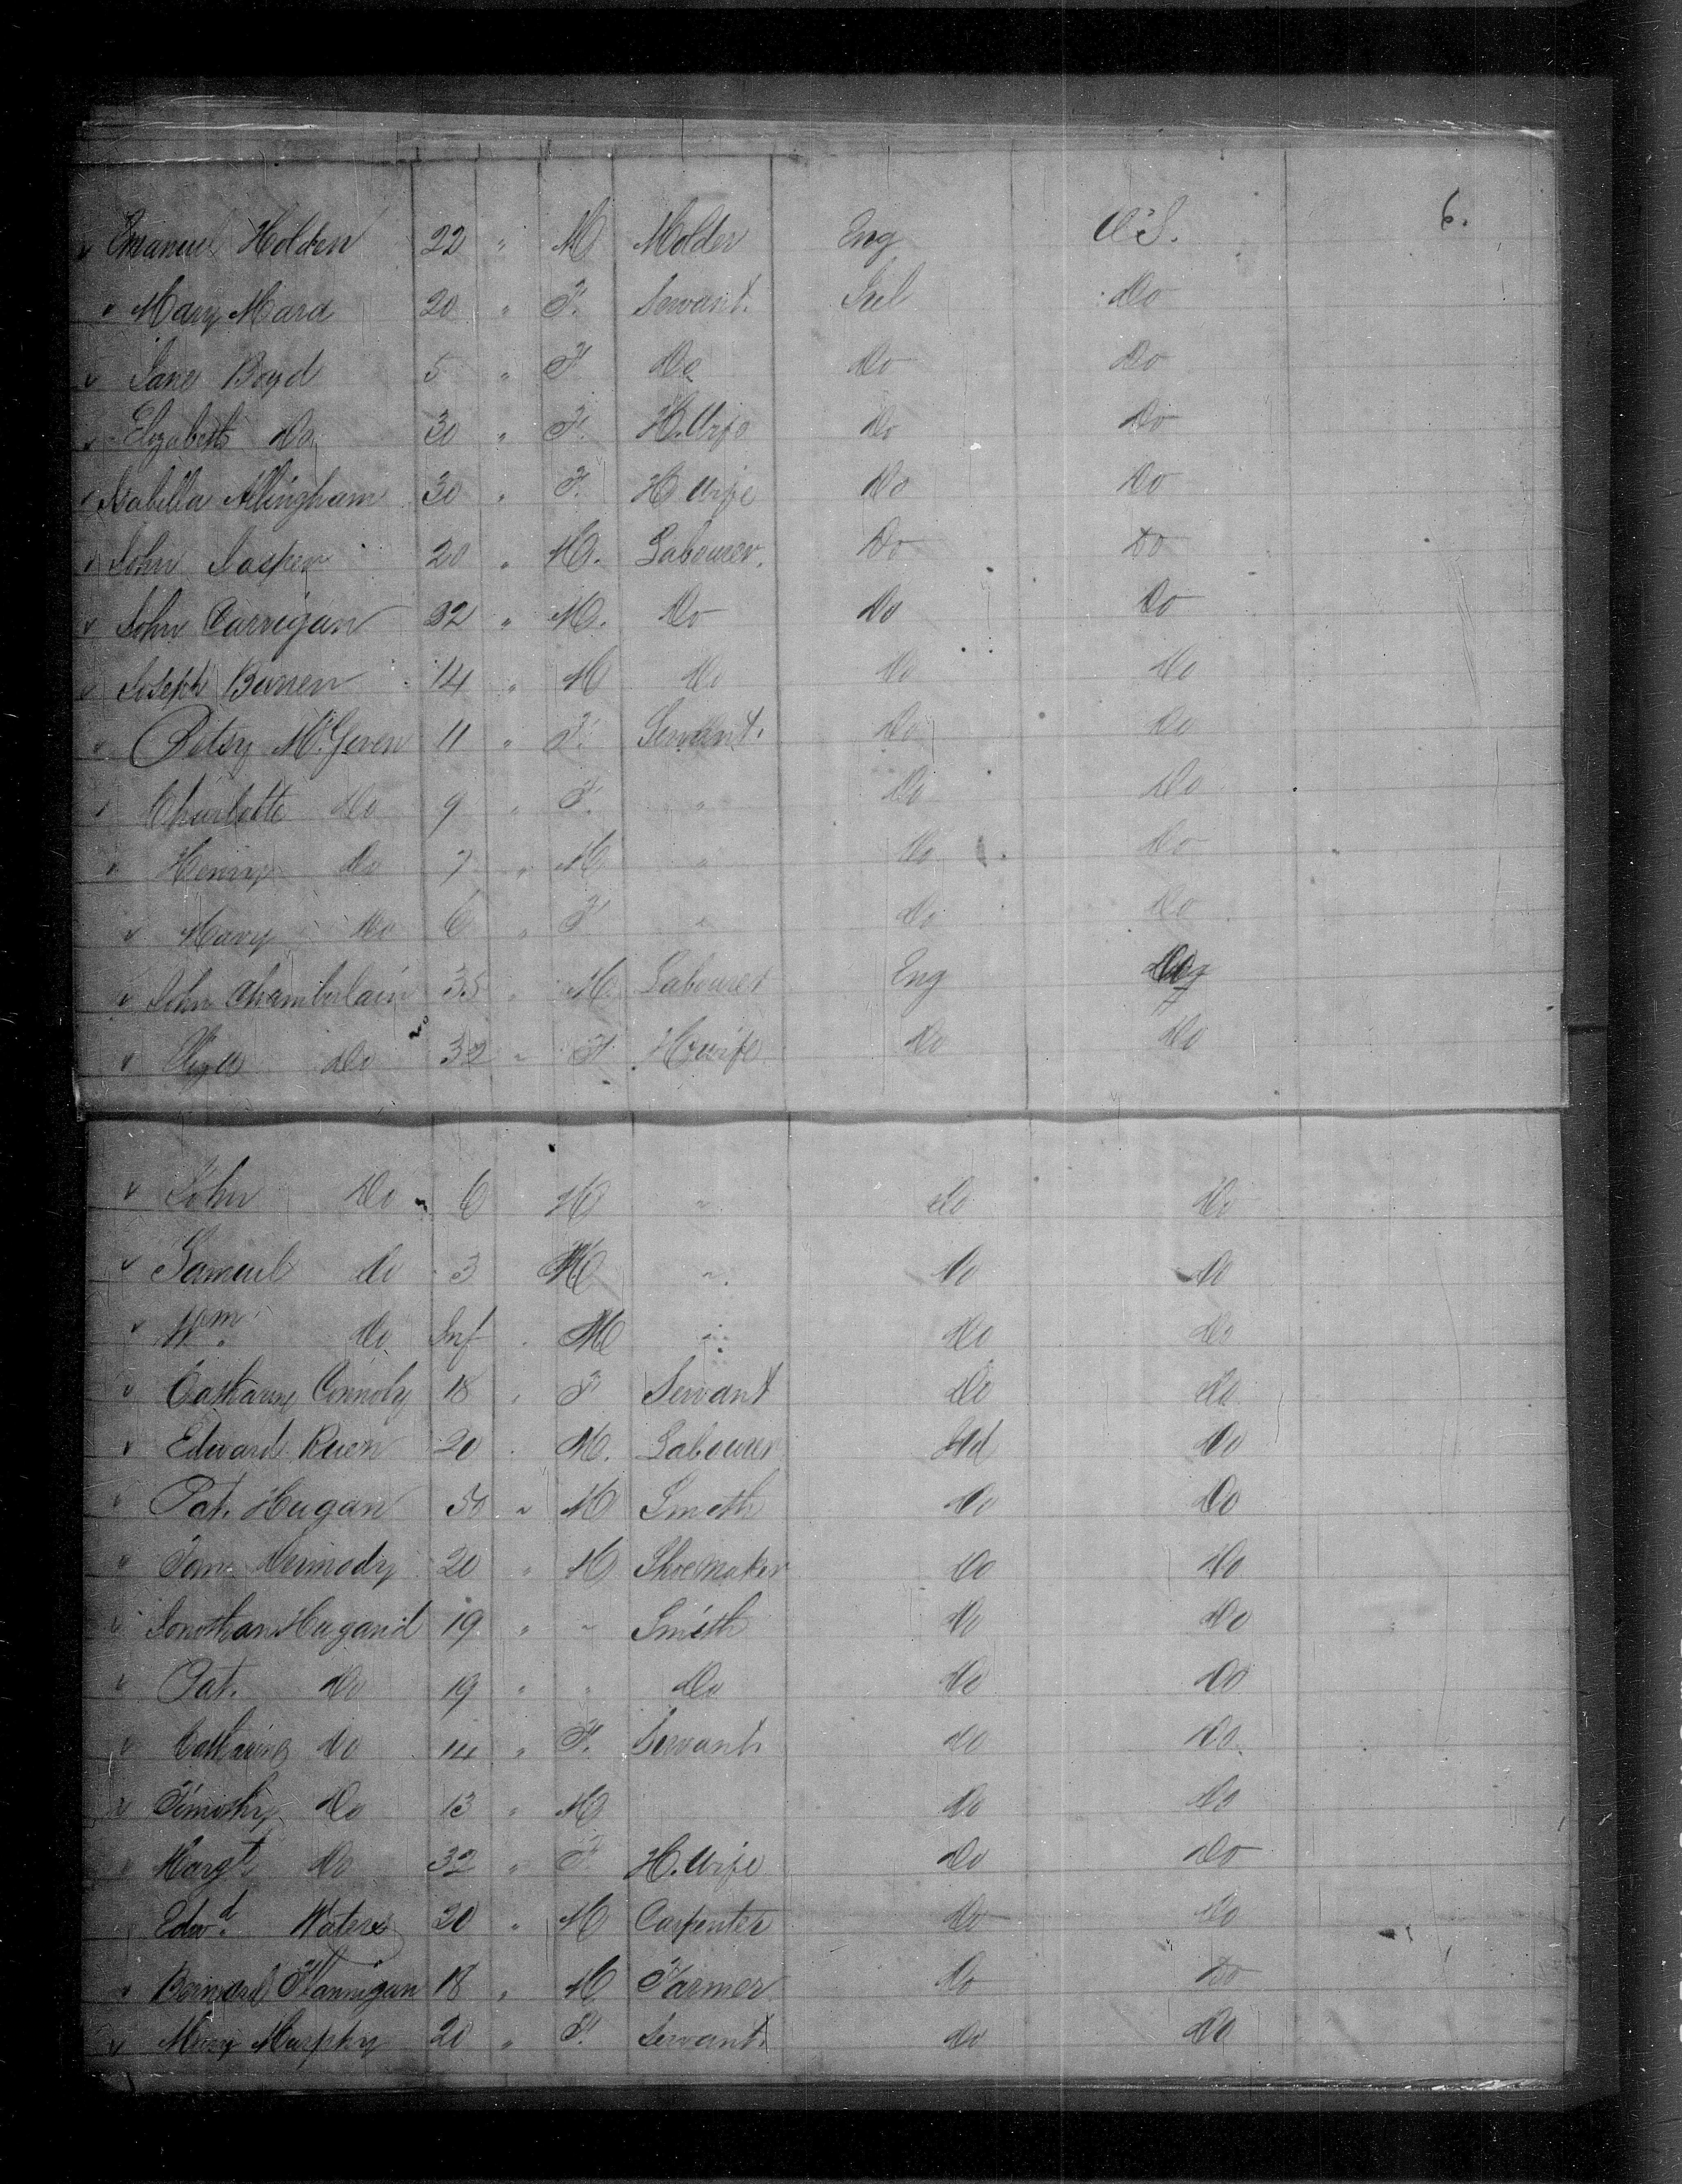 6.
Emanuel Holden 22 " M Molder Eng U S.
" Mary Mara 20 " F. Servant. Irel Do
Jane Boyd 5 " F Do Do Do
Elizabeth Do 30 " F. H. Wife Do Do
Isabella Allingham 30 " F. H Wife Do Do
John Jasper 20 " M. Labourer. Do Do
John Carrigan 22 " M. Do Do Do
Joseph Burren 14 " M Do Do Do
Betsy McGeven 11 " F. Servant. Do Do
Charlotte Do 9 " F. " Do Do
Henry Do 7 " M " Do Do
Mary Do 6 " F " Do Do
John Chamberlain 35 " M. Labourer Eng Do
Eliza Do 32 " F H wife Do Do
John Do 6 M " Do Do
Samuel Do 3 M " Do Do
Wm. Do Inf " M " Do Do
Catharine Connoly 18 " F Servant Do Do
Edward Ruen 20 " M. Labourer Ild Do
Pat. Hugan 50 " M Smith Do Do
Dermody 20 " M Shoemaker Do Do
Jonathan 19 " " Smith Do Do
Pat. Do 19 " " Do Do Do
Catharine Do 14 " F. Servant Do Do
Timothy Do 13 " M Do Do
Margt Do 32 " F H. Wife Do Do
Edwd. Waters 20 " M Carpenter Do Do
" Bernard Flannigan 18 " M Farmer Do Do
Mary Murphy 20 " F. Servant Do Do